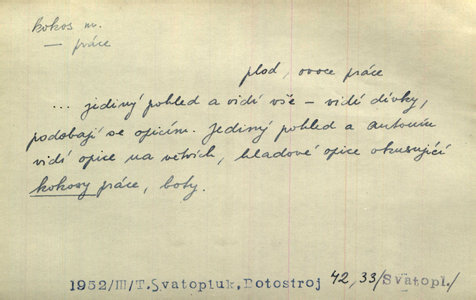 kokos m.
— práce
plod, ovoce práce
... jediný pohled a vidí vše – vidí dívky,
podobají se opicím. Jediný pohled a Antonín
vidí opice na větvích, hladové opice okusující
kokosy práce, boty.
1952/III/T.Svatopluk, Botostroj 42,33/Svatopl./